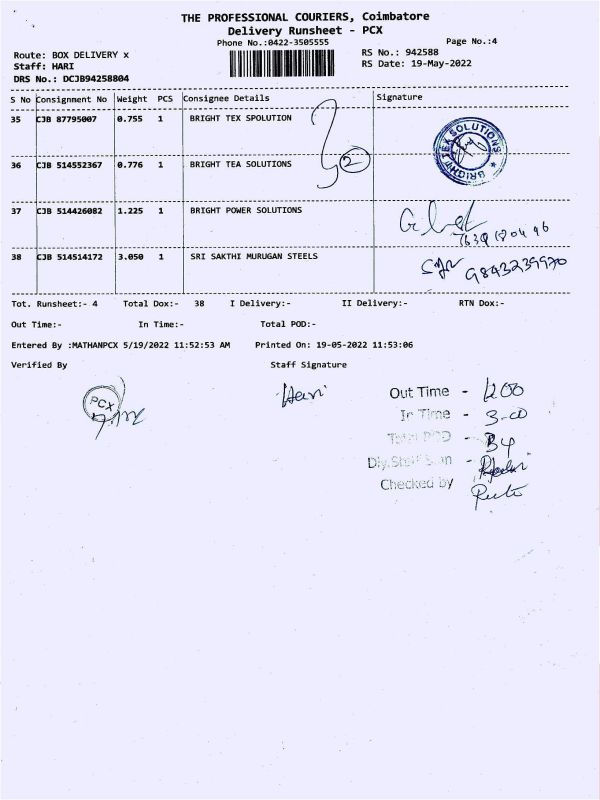 THE PROFESSIONAL COURIERS, Coimbatore
Delivery Runsheet - PCX
Phone No.:0422-3505555
Page No.:4
Route: BOX DELIVERY x
RS No.: 942588
Staff: HARI
RS Date: 19-May-2022
DRS No.: DCJB94258804
S No Consignment No Weight PCS Consignee Details Signature
35 CJB 87795007 0.755 1 BRIGHT TEX SPOLUTION
BRIGHT TEX SOLUTIONS
2
36 CJB 514552367 0.776 1 BRIGHT TEA SOLUTIONS
37 CJB 514426082 1.225 1 BRIGHT POWER SOLUTIONS
38 CJB 514514172 3.050 1 SRI SAKTHI MURUGAN STEELS
9843239970
Tot. Runsheet:- 4 Total Dox:- 38 I Delivery:- II Delivery:- RTN Dox:-
Out Time:- In Time:- Total POD:-
Entered By :MATHANPCX 5/19/2022 11:52:53 AM Printed On: 19-05-2022 11:53:06
Verified By Staff Signature
PCX
Hari
Out Time - 1200
In Time - 3-00
Total POD -
Dly.Staff Sign -
Checked by